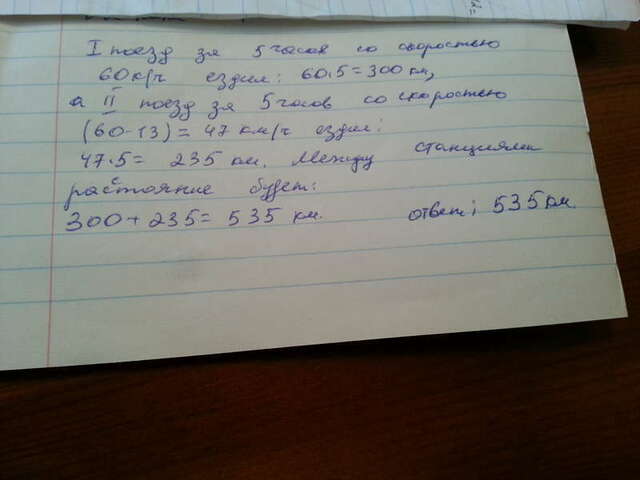 I поезд за 5 часов со скоростью
60 к/ч ездил: 60·5=300 км,
а II поезд за 5 часов со скоростью
(60-13)= 47 км/ч ездил:
47·5= 235 км. Между станциями
растояние будет:
300+235= 535 км. ответ: 535 км.